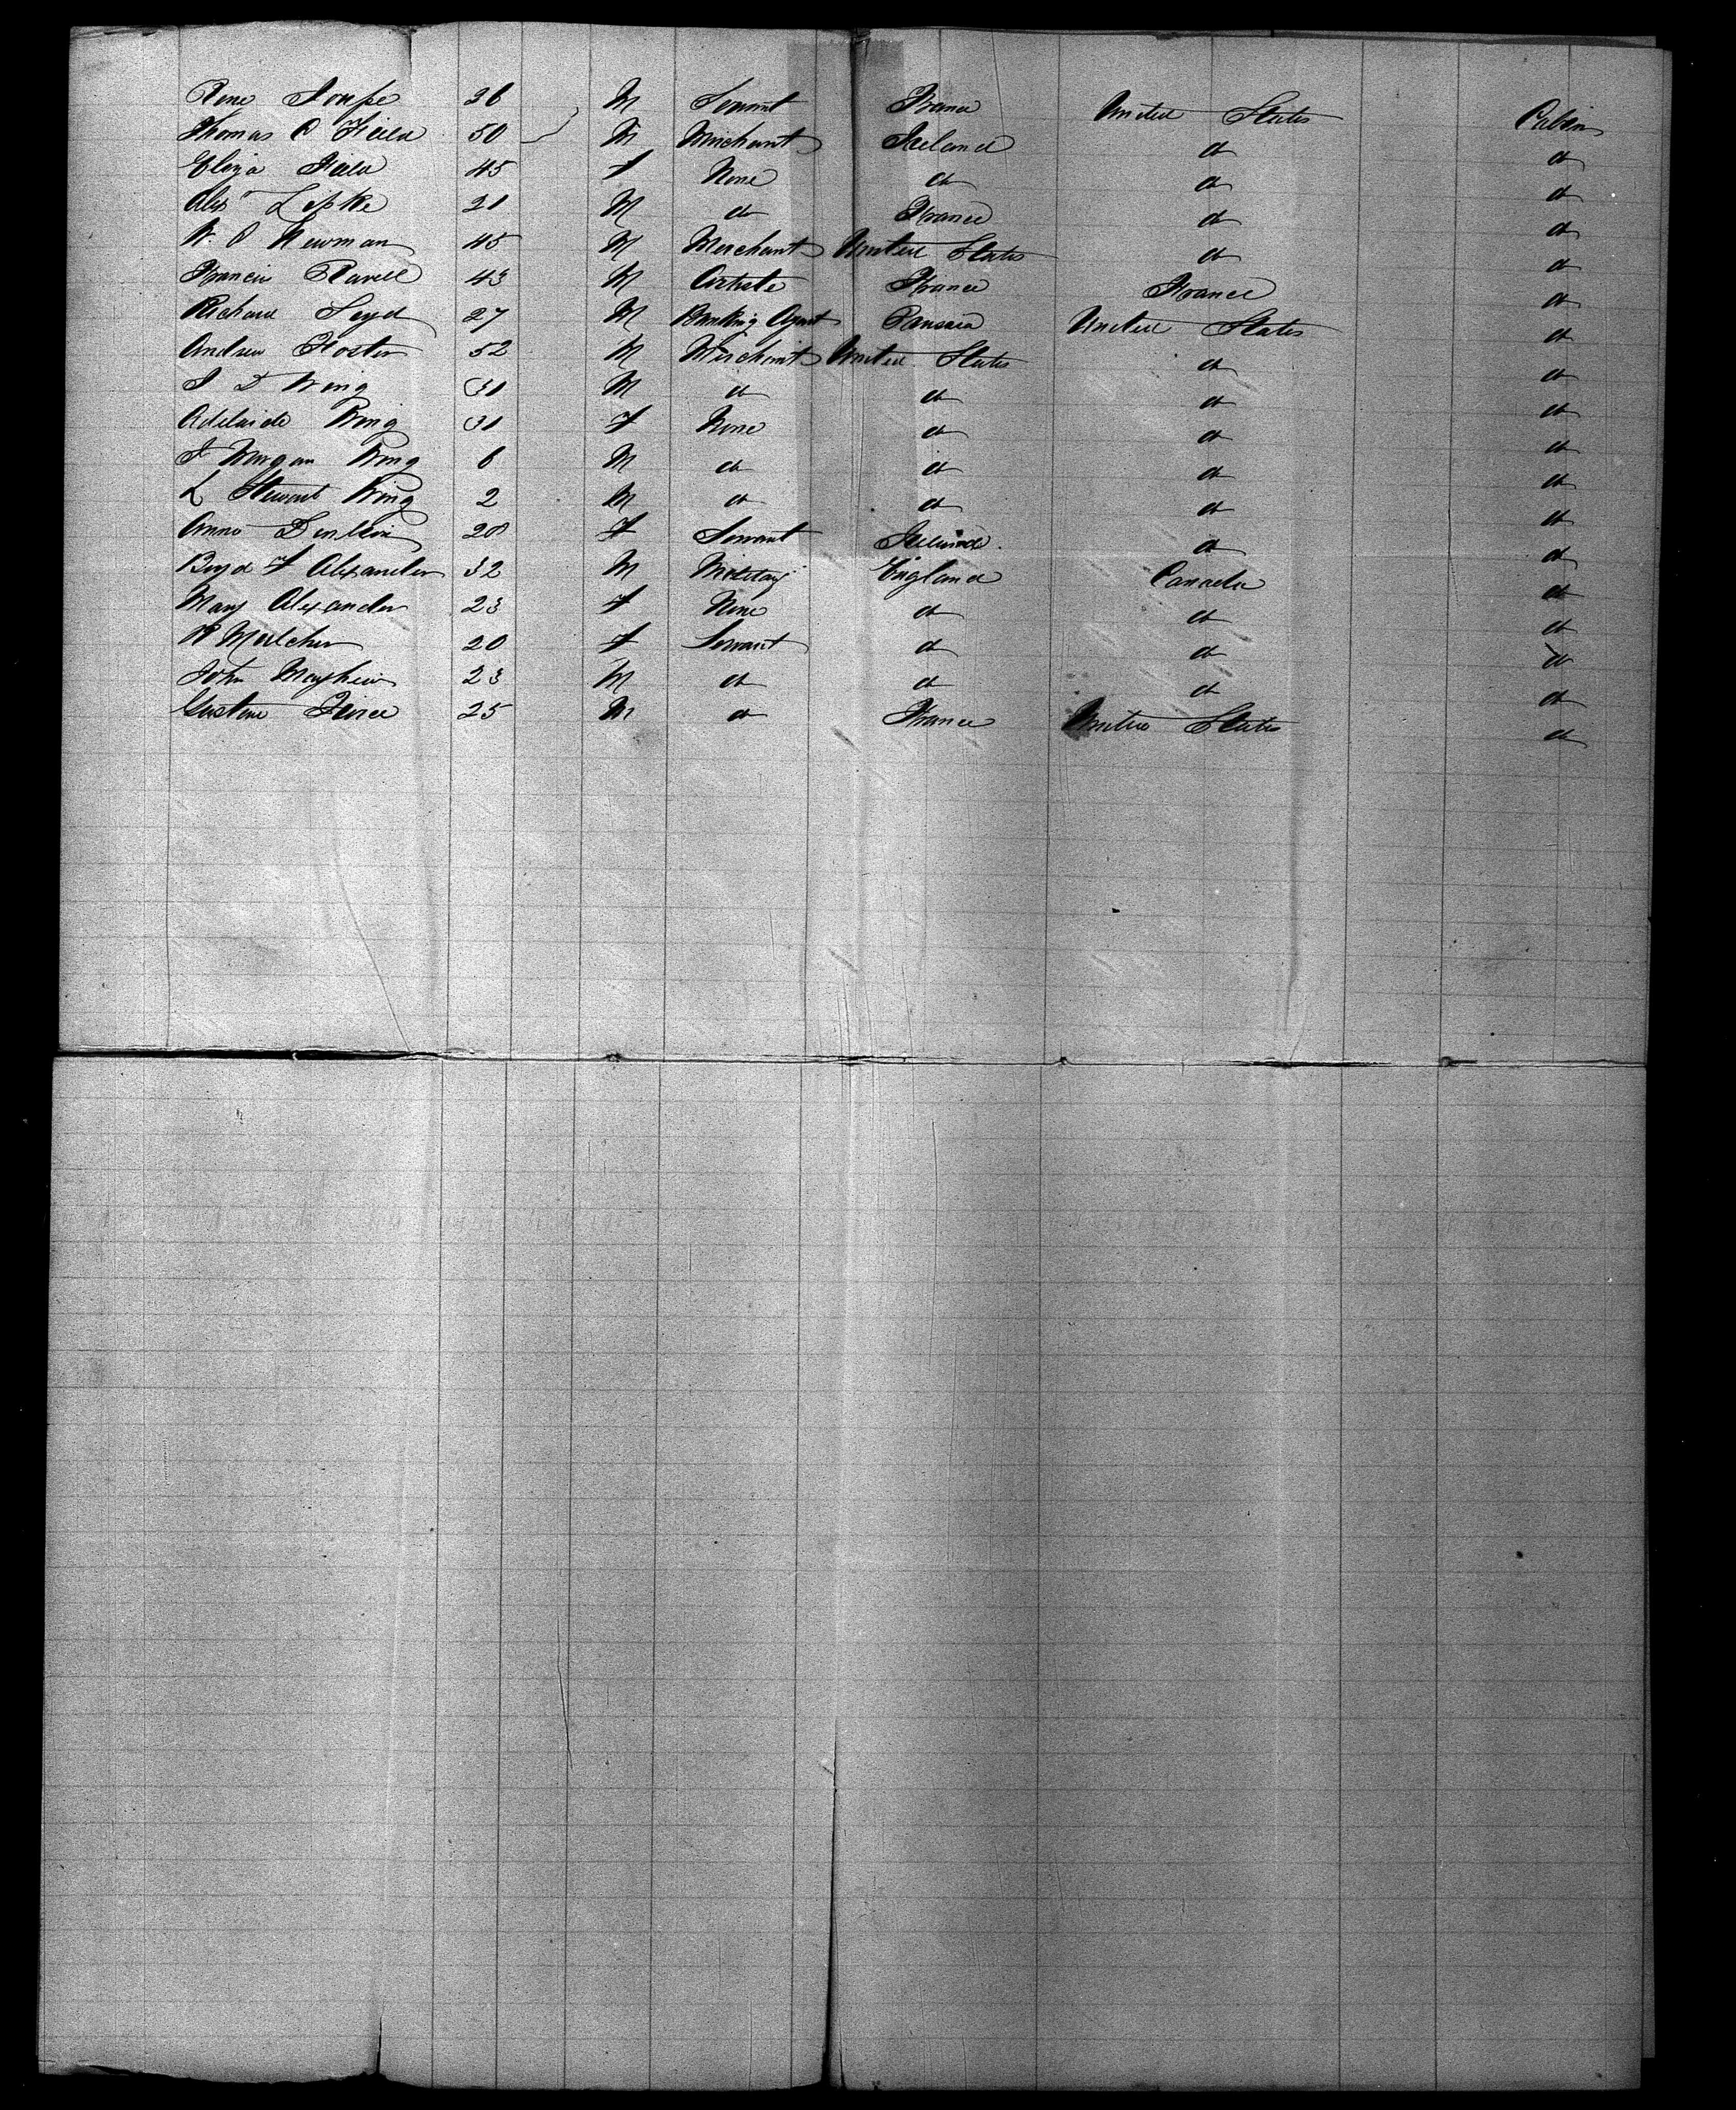 Rene Joupe 36 M Servant France United States Cabin
Thomas C Field 50 M Merchant Ireland do do
Eliza Field 45 F None do do do
Alexr Lipke 21 M do France do do
W. C Newman 45 M Merchant United States do do
Francis Ravel 43 M Artiste France France do
Richard Seyd 27 M Banking Agent United States do
Andrew Foster 52 M Merchant United States do do
J D Wing 31 M do do do do
Adelaide Wing 31 F None do do do
J Morgan Wing 6 M do do do do
L Stewart Wing 2 M do do do do
Anna 20 F Servant Ireland do do
Boyd F Alexander 32 M Military England Canada do
Mary Alexander 23 F None do do do
R Melcher 20 F Servant do do do
John Mayhew 23 M do do do do
Gustave 25 M do France United States do